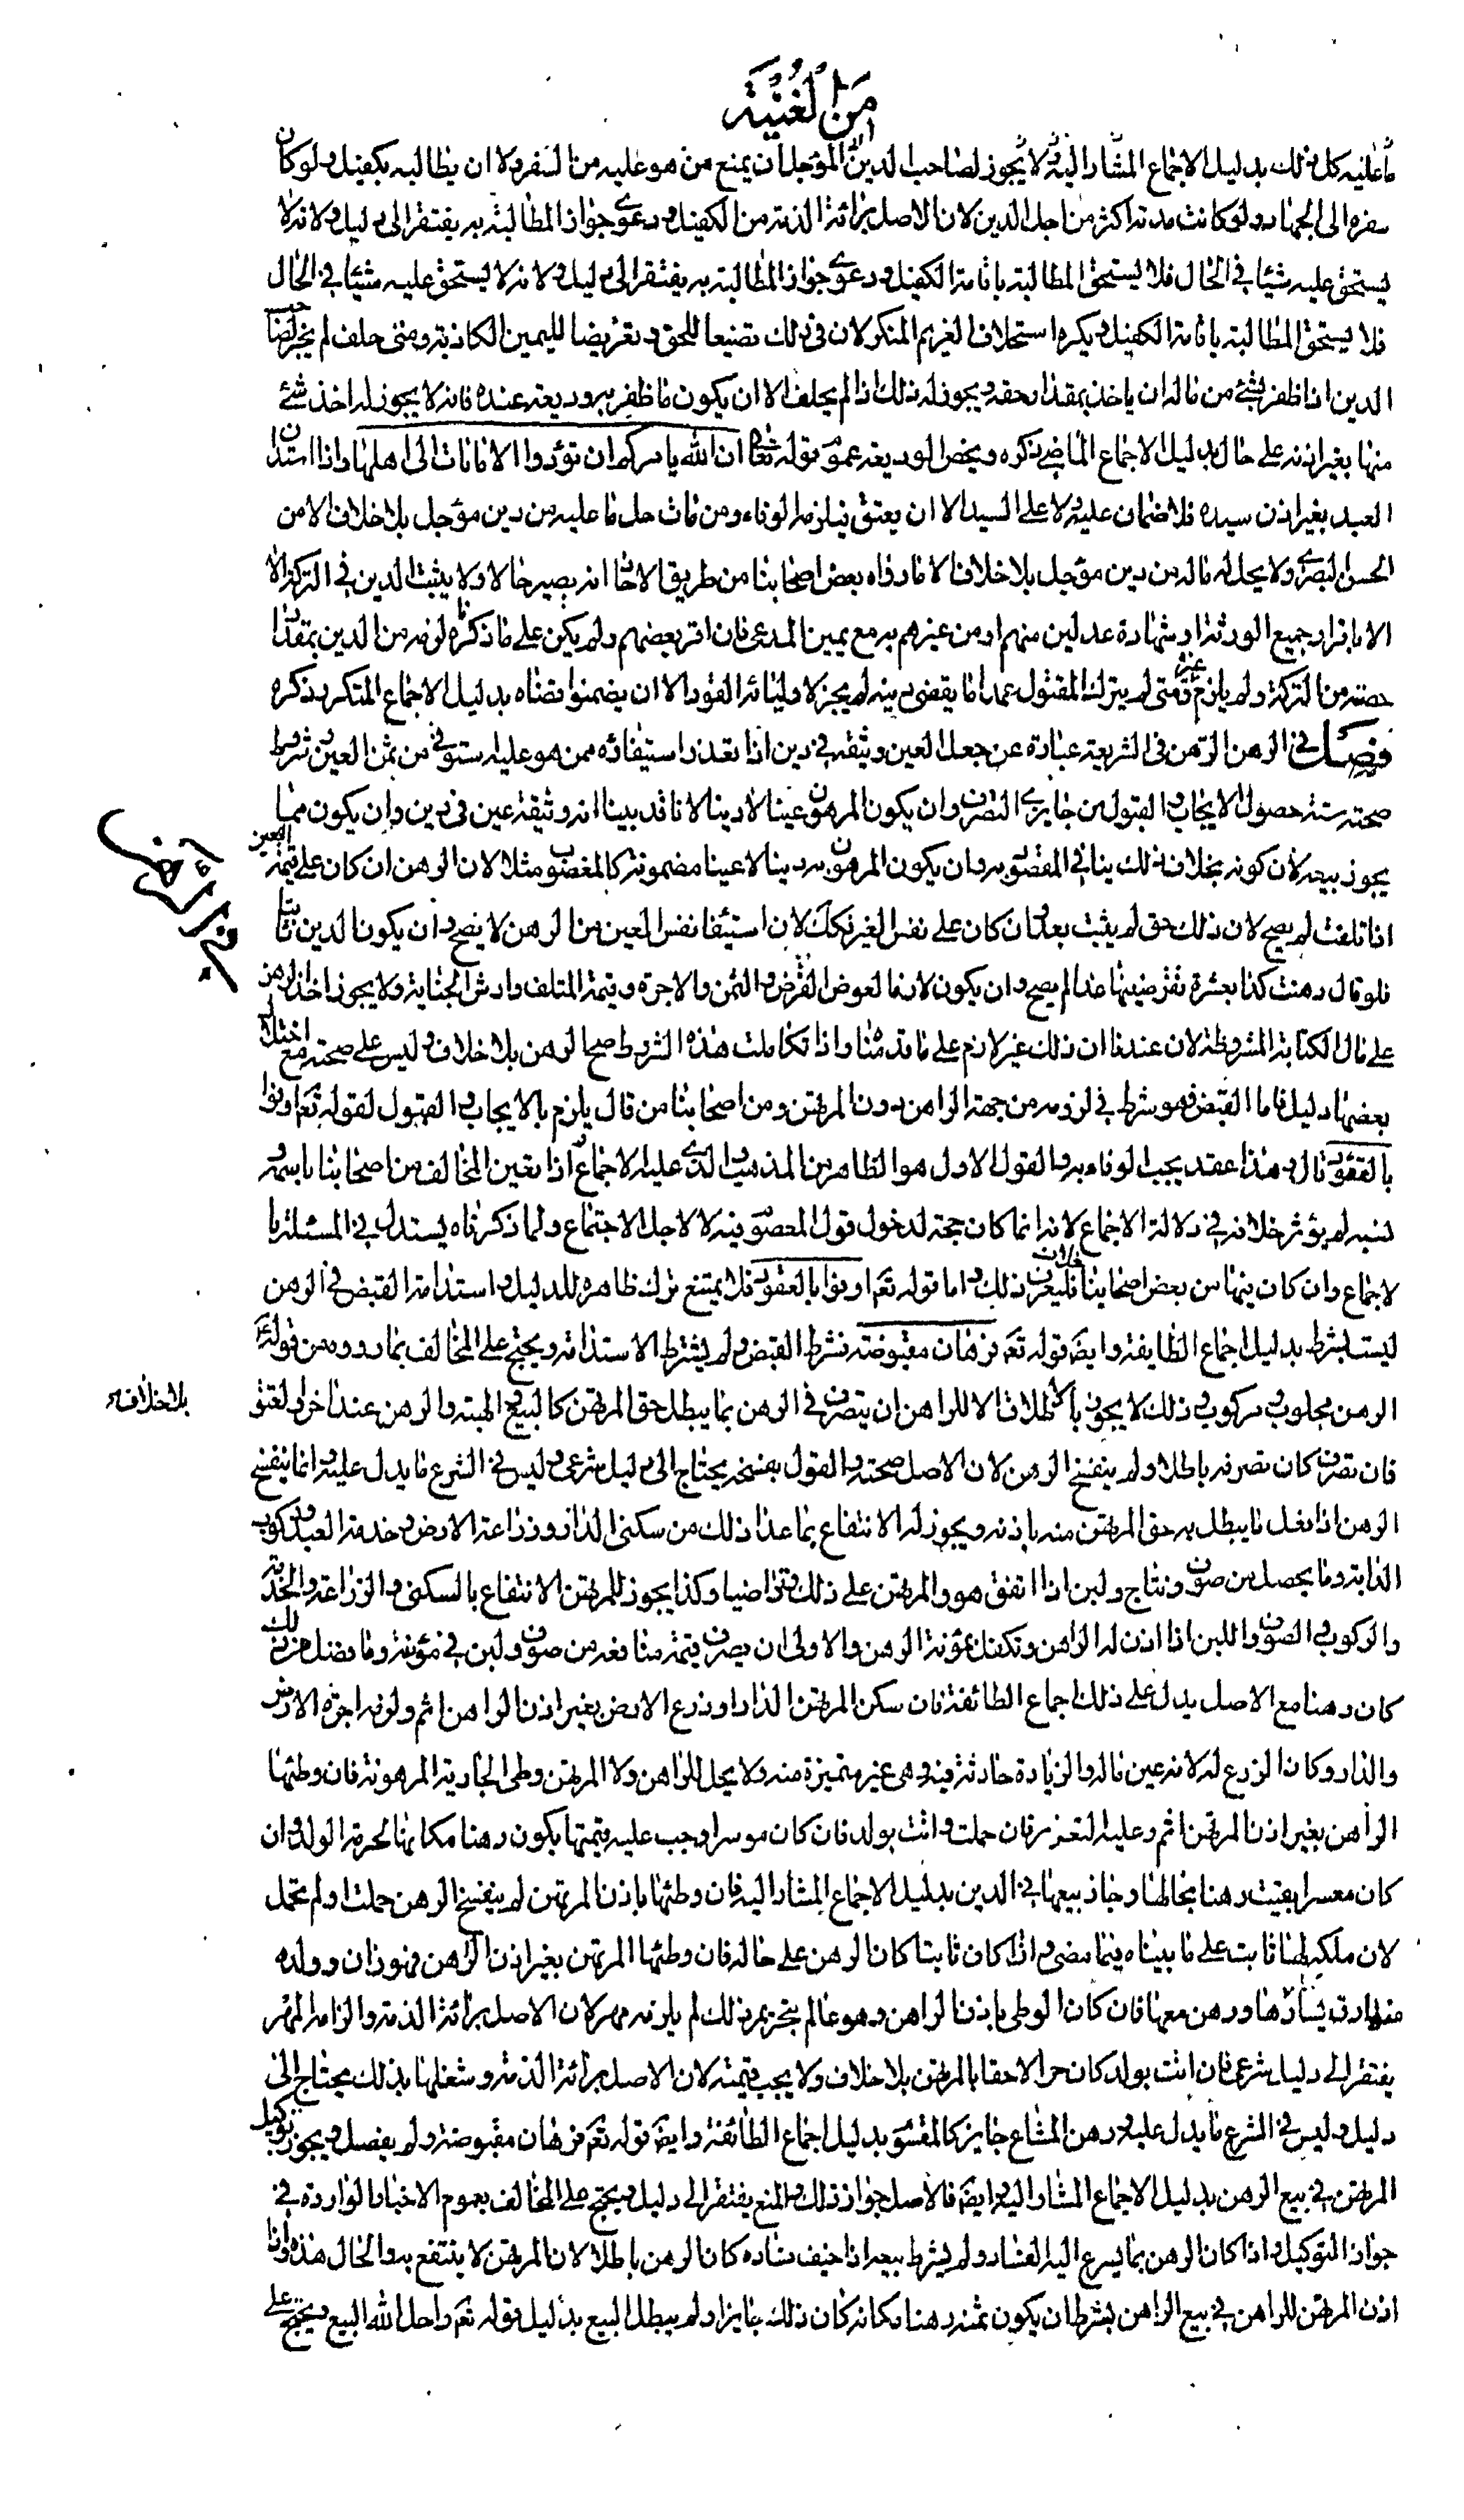 من الغنية
ما عليه كل ذلك بدليل الاجماع المشار اليه ولا يجوز لصاحب الدين المؤجل ان يمنع من هو عليه من السفر ولا ان يطالبه بكفيل ولو كان
سفره الى الجهاد ولو كانت مدته اكثر من اجل الدين لان الاصل برائة الذمة من الكفيل ودعوى جواز المطالبة به يفتقر الى دليل ولانه لا
يستحق عليه شيئا في الحال فلا يستحق المطالبة باقامة الكفيل ودعوى جواز المطالبة به يفتقر الى دليل ولانه لا يستحق عليه شيئا في الحال
فلا يستحق المطالبة باقامة الكفيل ويكره استحلاف الغريم المنكر لان في ذلك تضييعا للحق وتعريضا لليمين الكاذبة ومتى حلف لم يجز لصاحب
الدين اذا ظفر بشئ من ماله ان ياخذ بمقدار حقه ويجوز له ذلك اذا لم يحلف الا ان يكون ما ظفر به وديعة عنده فانه لا يجوز له اخذ شئ
منها بغير اذنه على حال بدليل الاجماع الماضي ذكره ويخص الوديعة عموم قوله تعالى ان الله يامركم ان تؤدوا الامانات الى اهلها واذا استدان
العبد بغير اذن سيده فلا ضمان عليه ولا على السيد الا ان يعتق فيلزمه الوفاء ومن مات حل ما عليه من دين مؤجل بلا خلاف الا من
الحسن البصري ولا يحل له ماله من دين مؤجل بلا خلاف الا ما رواه بعض اصحابنا من طريق الاحاد انه يصير حالا ولا يثبت الدين في التركة الا
الا باقرار جميع الورثة او شهادة عدلين منهم او من غيرهم به مع يمين المدعى فان اقر بعضهم ولم يكن على ما ذكرناه لزمه من الدين بمقدار
حصته من التركة ولم يلزم غيره ومتى لم يترك المقتول عمدا ما يقضى دينه لم يجز لاوليائه القود الا ان يضمنوا قضاه بدليل الاجماع المتكرر ذكره
فصل في الرهن الرهن في الشريعة عبارة عن جعل العين وثيقة في دين اذا تعذر استيفائه ممن هو عليه استوفى من ثمن العين وشروط
صحته ستة حصول الايجاب والقبول من جايزي التصرف وان يكون المرهون عينا لا دينا لانا قد بينا انه وثيقة عين في دين وان يكون مما
يجوز بيعه لان كونه بخلاف ذلك ينافي المقصود به وان يكون المرهون به دينا لا عينا مضمونة كالمغصوب مثلا لان الرهن ان كان على قيمة العين
اذا تلفت لم يصح لان ذلك حق لم يثبت بعد وان كان على نفس العين فكك لان استيفا نفس العين من الرهن لا يصح وان يكون الدين ثابتا
فلو قال رهنت كذا بعشرة تقرضنيها غدا لم يصح وان يكون لازما لعوض القرض والثمن والاجرة وقيمة المتلف وارش الجناية ولا يجوز اخذ الرهن
على مال الكتابة المشروطة لان عندنا ان ذلك غير لازم على ما قدمناه واذا تكاملت هذه الشروط صح الرهن بلا خلاف وليس على صحته مع اختلال
بعضها دليل فاما القبض فهو شرط في لزومه من جهة الراهن دون المرتهن ومن اصحابنا من قال يلزم بالايجاب والقبول لقوله تعم اوفوا
بالعقود قال وهذا عقد يجب الوفاء به والقول الاول هو الظاهر من المذهب والذي عليه الاجماع واذا تعين المخالف من اصحابنا باسمه و
نسبه لم يؤثر خلافه في دلالة الاجماع لانه انما كان حجة لدخول قول المعصوم فيه لا لاجل الاجتماع ولما ذكرناه يستدل في المسئلة با
لاجماع وان كان فيها من بعض اصحابنا خلاف فليعرف ذلك واما قوله تعم اوفوا بالعقود فلا يمتنع ترك ظاهره للدليل واستدامة القبض في الرهن
ليست بشرط بدليل اجماع الطايفة وايض قوله تعم فرهان مقبوضة فشرط القبض ولم يشترط الاستدامة ويحتج على المخالف بما رووه من قوله
الرهن محلوب ومركوب وذلك لا يجوز بالاطلاق الا للراهن ان يتصرف في الرهن بما يبطل حق المرتهن كالبيع والهبة والرهن عند اخر والعتق
بلا خلاف
فان تصرف كان تصرفه باطلا ولم ينفسخ الرهن لان الاصل صحته والقول بفسخه يحتاج الى دليل شرعى وليس في الشرع ما يدل عليه وانما ينفسخ
الرهن اذا فعل ما يبطل به حق المرتهن منه باذنه ويجوز له الانتفاع بما عدا ذلك من سكنى الدار وزراعة الارض وخدمة العبد وركوب
الدابة وما يحصل من صوف ونتاج ولبن اذا اتفق هو والمرتهن على ذلك وتراضيا وكذا يجوز للمرتهن الانتفاع بالسكنى والزراعة والخدمة
والركوب والصوف واللبن اذا اذن له الراهن وتكفل بمؤنة الرهن والاولى ان يصرف قيمة منافعه من صوف ولبن في مؤنته وما فضل من ذلك
كان رهنا مع الاصل يدل على ذلك اجماع الطائفة فان سكن المرتهن الدار او زرع الارض بغير اذن الراهن اثم ولزمه اجرة الارض
والدار وكان الزرع له لانه عين ماله والزيادة حادثة فيه وهى غير متميزة منه ولا يحل للراهن ولا المرتهن وطى الجارية المرهونة فان وطئها
الراهن بغير اذن المرتهن اثم وعليه التعزير فان حملت واتت بولد فان كان موسرا وجب عليه قيمتها يكون رهنا مكانها لحرمة الولد وان
كان معسرا بقيت رهنا بحالها وجاز بيعها في الدين بدليل الاجماع المشار اليه فان وطئها باذن المرتهن لم ينفسخ الرهن حملت او لم تحمل
لان ملكه لها ثابت على ما بيناه فيما مضى واذا كان ثابتا كان الرهن على حاله فان وطئها المرتهن بغير اذن الراهن فهو زان وولده
منها رق لسيدها ورهن معها فان كان الوطى باذن الراهن وهو عالم بتحريم ذلك لم يلزمه مهر لان الاصل برائة الذمة والزامه المهر
يفتقر الى دليل شرعى فان اتت بولد كان حرا لاحقا بالمرتهن بلا خلاف ولا يجب قيمته لان الاصل برائة الذمة وشغلها بذلك يحتاج الى
دليل وليس في الشرع ما يدل عليه ورهن المشاع جايز كالمقسوم بدليل اجماع الطائفة وايض قوله تعم فرهان مقبوضة ولم يفصل ويجوز توكيل
المرتهن في بيع الرهن بدليل الاجماع المشار اليه وايض فالاصل جواز ذلك والمنع يفتقر الى دليل ويحتج على المخالف بعموم الاخبار الواردة في
جواز التوكيل واذا كان الرهن مما يسرع اليه الفساد ولم يشرط بيعه اذا خيف فساده كان الرهن باطلا لان المرتهن لا ينتفع به والحال هذه واذا
اذن المرتهن للراهن في بيع الراهن بشرط ان يكون ثمنه رهنا مكانه كان ذلك جايزا ولم يبطل البيع بدليل قوله تعم واحل الله البيع ويحتج على